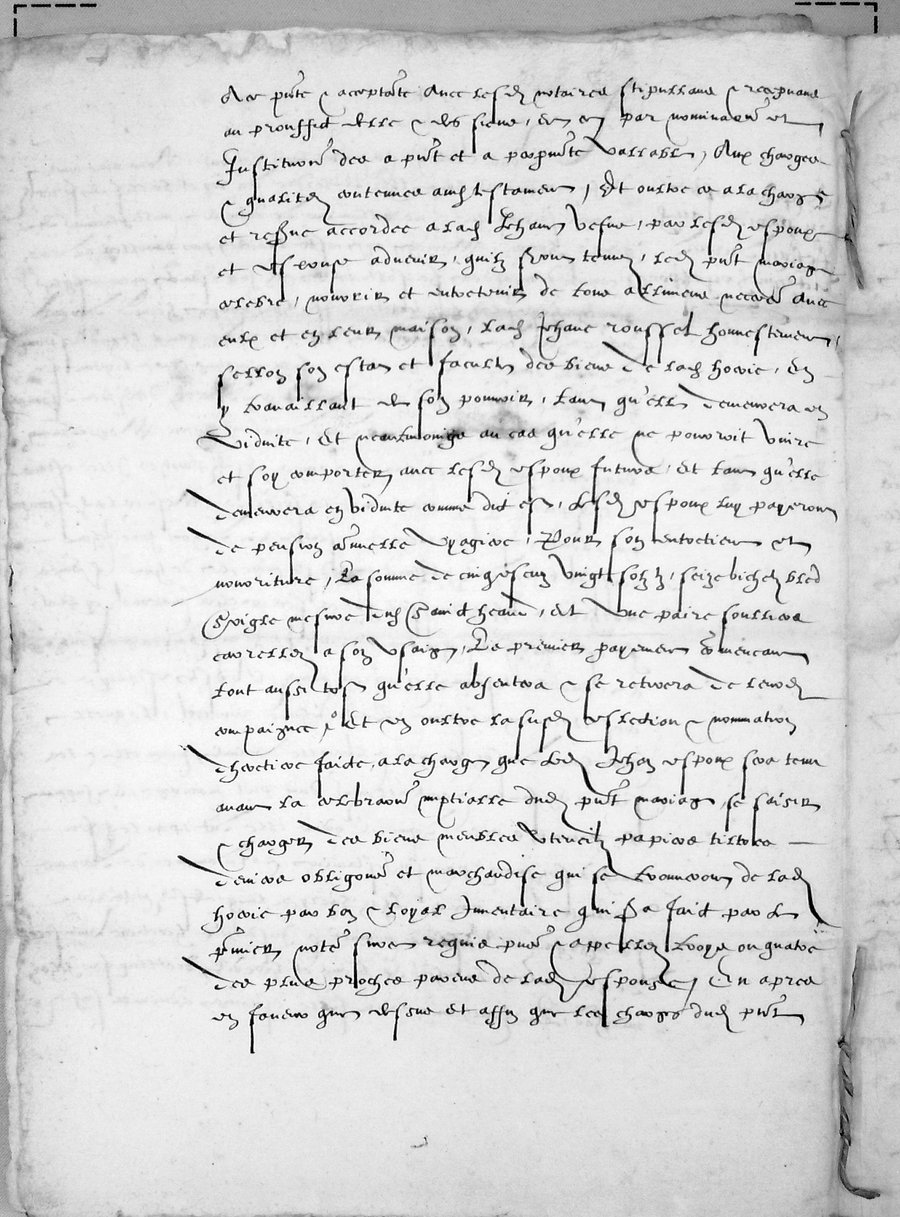 Ace pnte & acceptate Avec lesd notaires stipullans & recepvans
au prouffid delle & des siens, en par nominaon et
Institution des a pnt et a perpuite Vallable, Aux charges
& qualites contenues aud testament, Et oultre ce a la charge
et reserve accordee a lad Jehanne Vefve, par lesd espoux
et espouse advenir, quilz seront tenus, led pnt mariage
celebre, nourrir et entretenir de tous allimens necces Avec
eulx et en leur maison, lad Jehane roussel honnestement,
sellon son estat et faculte des biens de lad hoirie, En
y travaillant de son pouvoir, tant qu'elle demeurera en
Viduite, Et neantmoings au cas qu'elle ne pourroit vivre
et soy comporter avec lesd espoux futurs, Et tant qu'elle
demeurera en viduite comme dict est, lesd espoux luy payeront
de pension annuelle vyagire, Pour son entretien et
nourriture, La somme de cinq escuz vingt solz tz, seize bichetz bled
Seigle mesure dud Sainct heand, Et Une paire soulliers
carrellez a son usaige, Le premier payement comencant
tout aussi tost qu'elle absentera & se retirera de leurd
compaignee, Et en oultre la susd eslection & nomination
dheretiere faicte, a la charge que led Jehan espoux sera tenu
avant la celebraon nuptialle dud pnt mariage, se saisir
& charger des biens meubles Utencilz papiers tiltres
deniers obligons et marchandise qui se trouveront de lad
hoirie par bon & loyal Inventaire qui sera faict par le
premier notre sur ce requis pnts & appellez troys ou quatre
des plus proches parens de lad espouse, En apres
en faveur que dessus et affin que les charges dud pnt